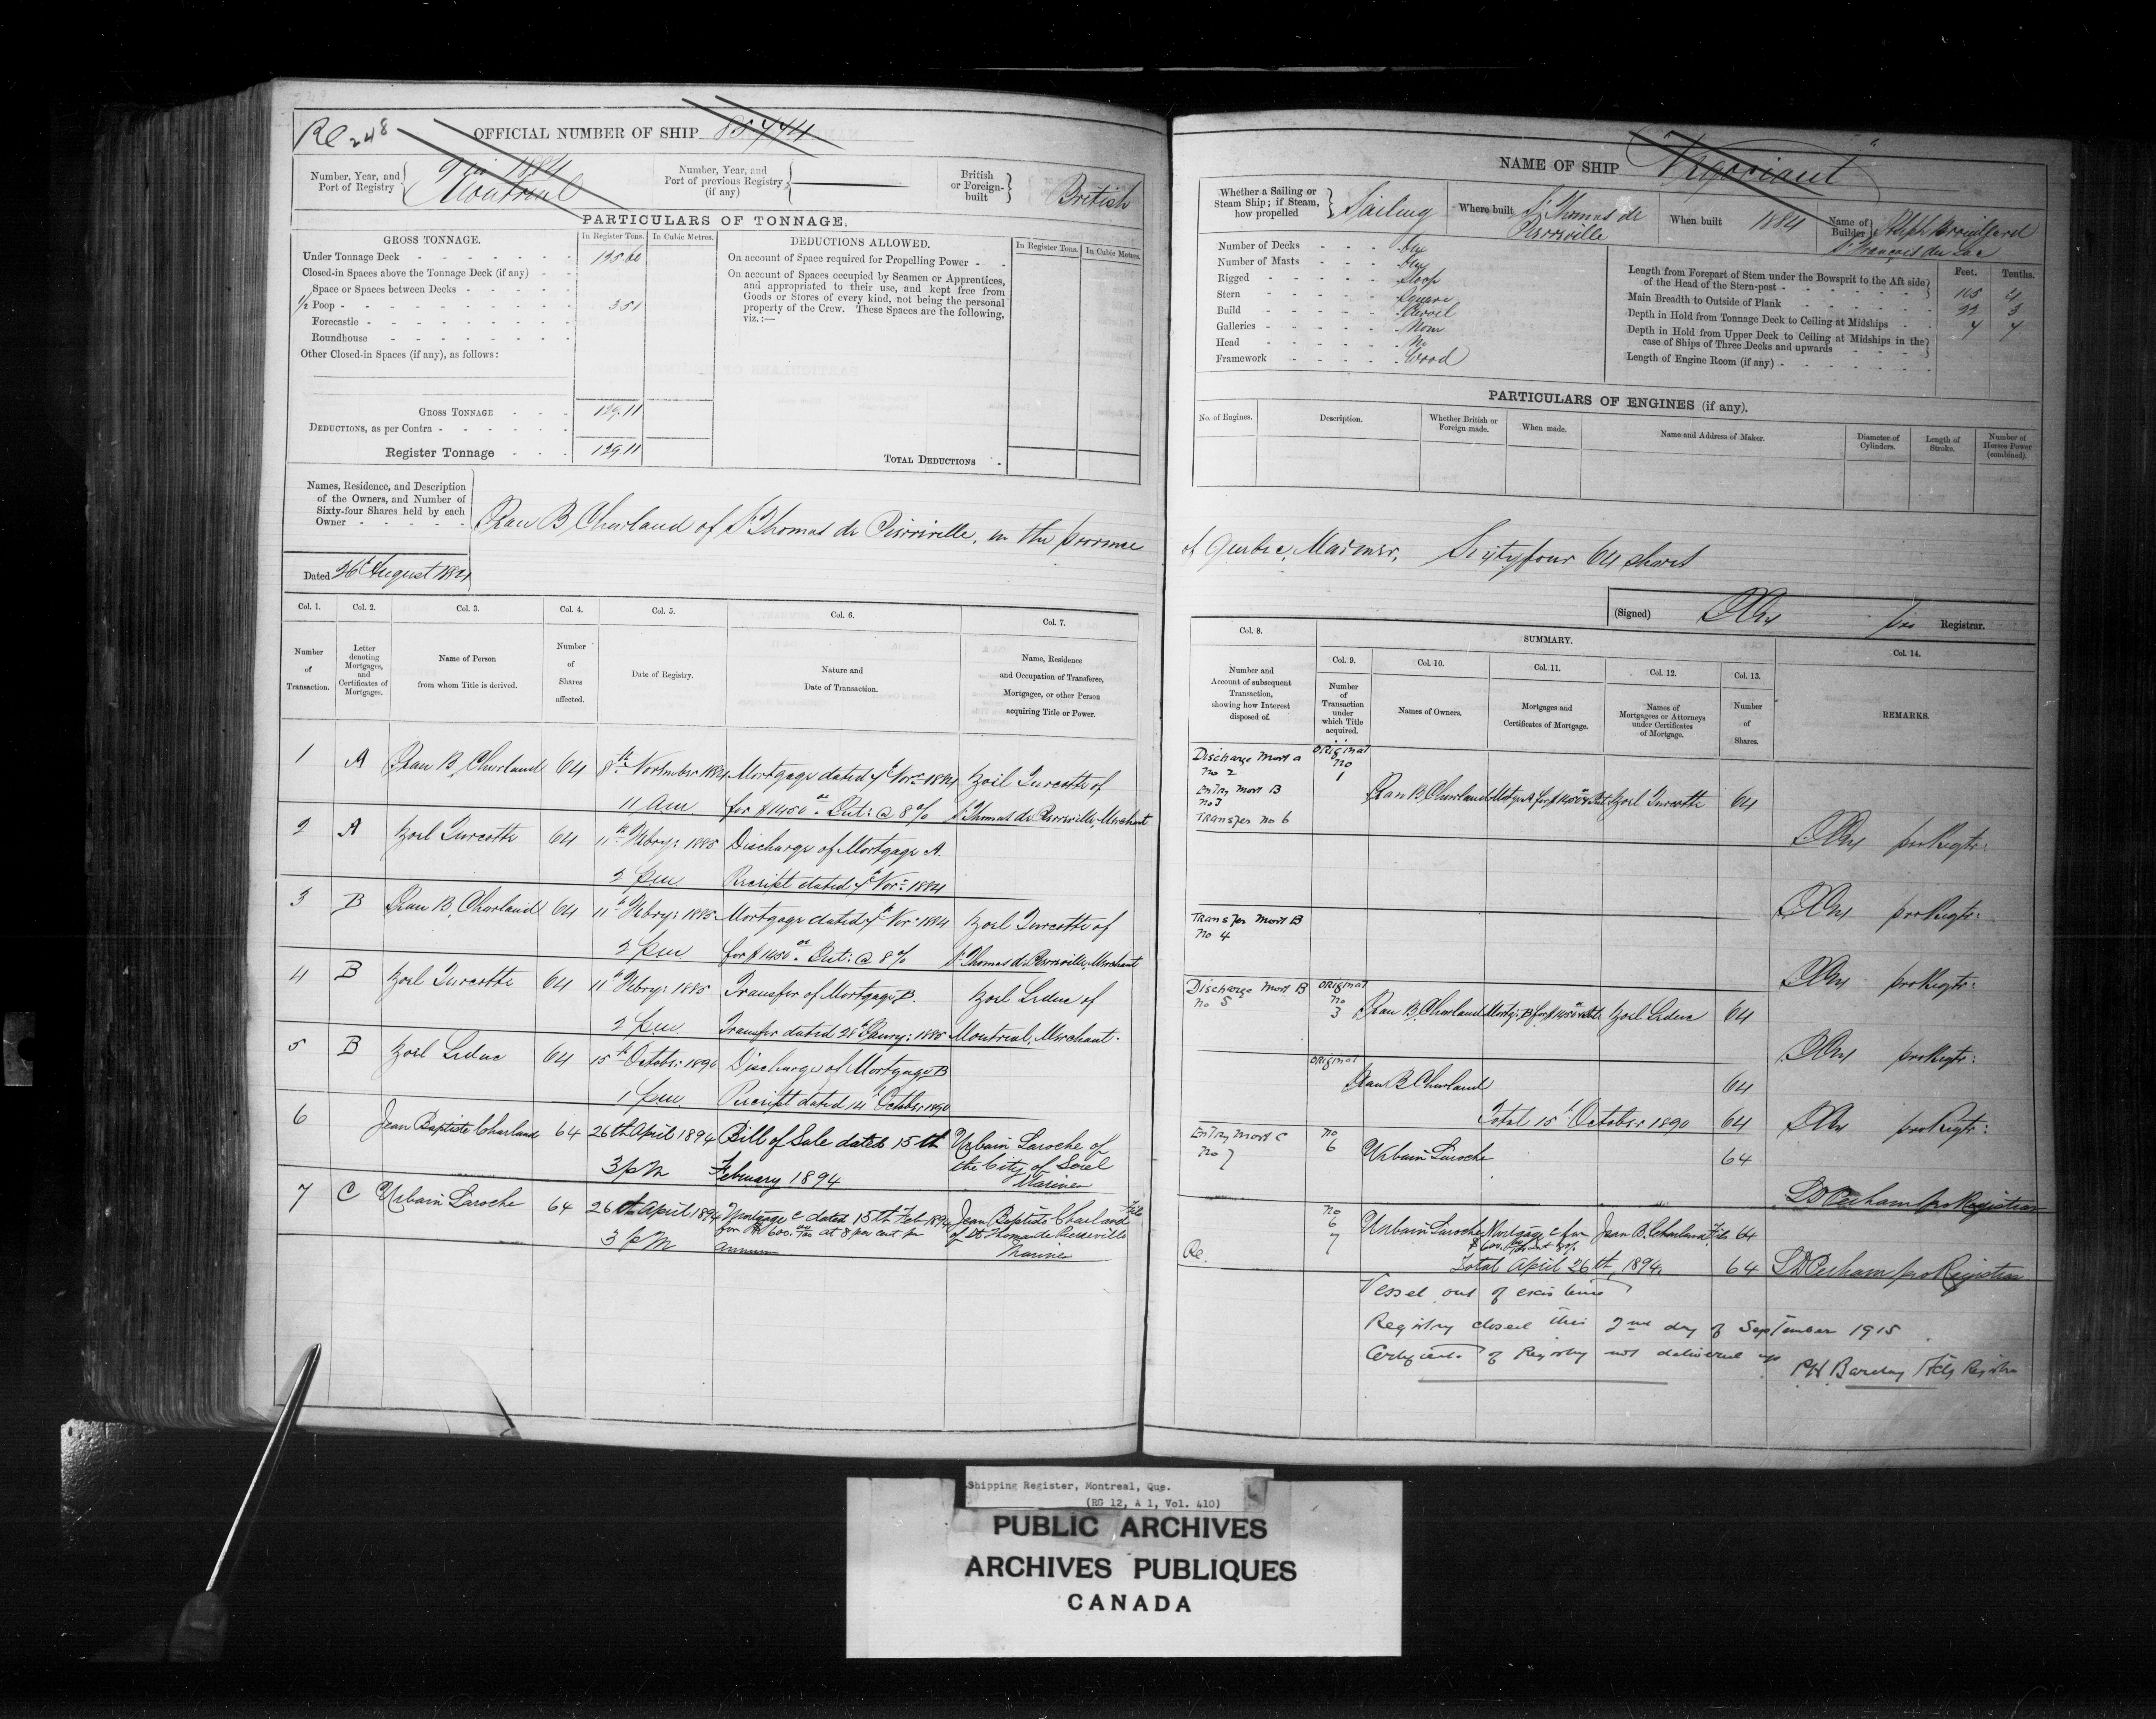 Re 248
OFFICIAL NUMBER OF SHIP
Number, Year, and Port of Registry
1884
Montreal
Number, Year, and Port of previous Registry (if any)
British or Foreign-built
British
PARTICULARS OF TONNAGE.
GROSS TONNAGE.
In Register Tons.
In Cubic Metres.
DEDUCTIONS ALLOWED.
In Register Tons.
In Cubic Metres.
Under Tonnage Deck
125.60
Closed-in Spaces above the Tonnage Deck (if any)
Space or Spaces between Decks
½ Poop
3.51
Forecastle
Roundhouse
Other Closed-in Spaces (if any), as follows:
GROSS TONNAGE
129.11
DEDUCTIONS, as per Contra
Register Tonnage
129.11
On account of Space required for Propelling Power
On account of Spaces occupied by Seamen or Apprentices,
and appropriated to their use, and kept free from
Goods or Stores of every kind, not being the personal
property of the Crew. These Spaces are the following,
viz.:—
TOTAL DEDUCTIONS
Names, Residence, and Description
of the Owners, and Number of
Sixty-four Shares held by each
Owner
Jean B. Charland of St Thomas de Pierreville, in the province
Dated 26th August 1884
Col. 1.
Col. 2.
Col. 3.
Col. 4.
Col. 5.
Col. 6.
Col. 7.
Number of Transaction.
Letter denoting Mortgages, and Certificates of Mortgages.
Name of Person from whom Title is derived.
Number of Shares affected.
Date of Registry.
Nature and Date of Transaction.
Name, Residence and Occupation of Transferee, Mortgagee, or other Person acquiring Title or Power.
1 A Jean B. Charland 64 8th November 1884 Mortgage dated 7th Novr 1884 Zoël Turcotte of
11 am for $1450.00 Int: @ 8% St Thomas de Pierreville, Merchant
2 A Zoël Turcotte 64 11th Febry: 1885 Discharge of Mortgage A.
2 pm Receipt dated 7th Novr 1884
3 B Jean B. Charland 64 11th Febry: 1885 Mortgage dated 7th Novr 1884 Zoël Turcotte of
2 pm for $1450.00 Int: @ 8% St Thomas de Pierreville, Merchant
4 B Zoël Turcotte 64 11th Febry: 1885 Transfer of Mortgage B. Zoël Leduc of
2 pm Transfer dated 28th Janry: 1885 Montreal, Merchant.
5 B Zoël Leduc 64 15th October 1890 Discharge of Mortgage B
1 pm Receipt dated 14th October 1890
6 Jean Baptiste Charland 64 26th April 1894 Bill of Sale dated 15th Urbain Laroche of
3 pm February 1894 the City of Sorel
Mariner
7 C Urbain Laroche 64 26th April 1894 Mortgage C dated 15th Feb 1894 Jean Baptiste Charland Fils
for $600.00 at 8 per cent per of St Thomas de Pierreville
3 pm annum Mariner
NAME OF SHIP
Whether a Sailing or Steam Ship; if Steam, how propelled
Sailing
Where built
St Thomas de
Pierreville
When built
1884
Name of Builder
St François du Lac
Number of Decks One
Number of Masts One
Rigged Sloop
Stern Square
Build Carvel
Galleries None
Head No
Framework Wood
Feet.
Tenths.
Length from Forepart of Stem under the Bowsprit to the Aft side of the Head of the Stern-post
105 4
Main Breadth to Outside of Plank
22 3
Depth in Hold from Tonnage Deck to Ceiling at Midships
7 7
Depth in Hold from Upper Deck to Ceiling at Midships in the case of Ships of Three Decks and upwards
Length of Engine Room (if any)
PARTICULARS OF ENGINES (if any).
No. of Engines.
Description.
Whether British or Foreign made.
When made.
Name and Address of Maker.
Diameter of Cylinders.
Length of Stroke.
Number of Horses Power (combined).
of Quebec, Mariner, Sixtyfour 64 shares
(Signed)
pro Registrar.
Col. 8.
SUMMARY.
Col. 9.
Col. 10.
Col. 11.
Col. 12.
Col. 13.
Col. 14.
Number and Account of subsequent Transaction, showing how Interest disposed of.
Number of Transaction under which Title acquired.
Names of Owners.
Mortgages and Certificates of Mortgage.
Names of Mortgagees or Attorneys under Certificates of Mortgage.
Number of Shares.
REMARKS.
Discharge Mort A
No 2
Entry Mort B
No 3
Transfer No 6
Original
No
1
Jean B. Charland Zoël Turcotte 64
pro Regtr:
pro Regtr:
Transfer Mort B
No 4
pro Regtr:
Discharge Mort B
No 5
Original
No
3
Jean B. Charland Zoël Leduc 64
pro Regtr:
Original
Jean B Charland 64
Total 15th October 1890 64
pro Regtr:
Entry Mort C
No 7
No
6
Urbain Laroche 64
pro Registrar
No
6
7
Urbain Laroche Mortgage C for Jean B. Charland Fils 64
Re.
Total April 26th, 1894. 64
pro Registrar
Vessel out of existence
Registry closed this 2nd day of September 1915
Certificate of Registry not delivered up
Barclay Actg Registrar
Shipping Register, Montreal, Que.
(RG 12, A 1, Vol. 410)
PUBLIC ARCHIVES
ARCHIVES PUBLIQUES
CANADA